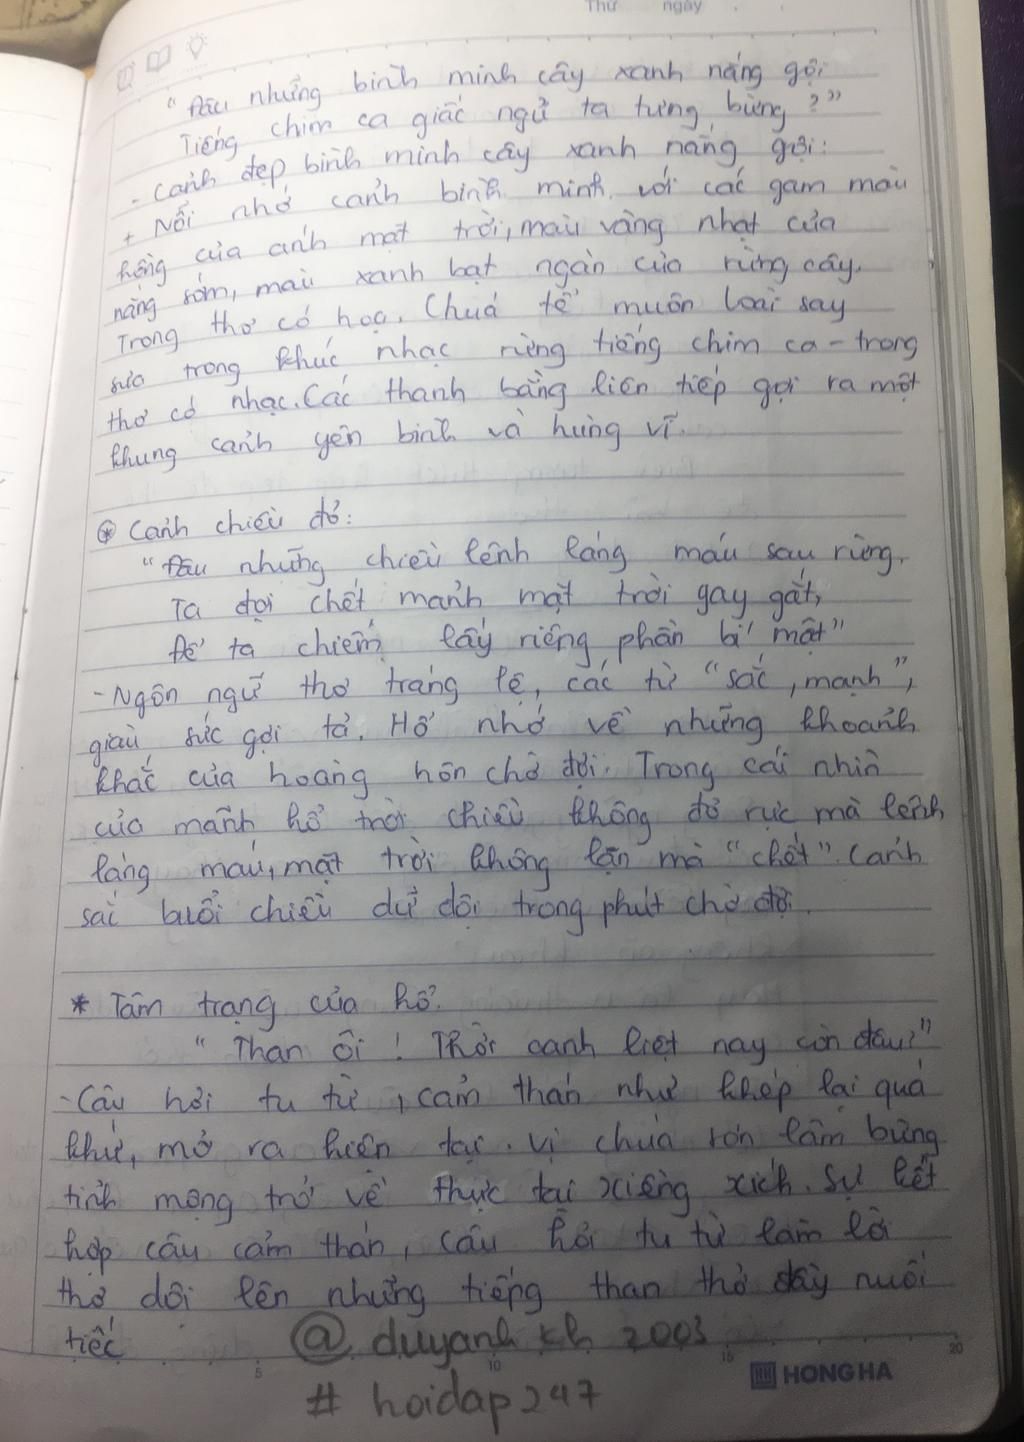 Thứ ngày
"Đâu những bình minh cây xanh nắng gội
Tiếng chim ca giấc ngủ ta tưng bừng?"
- Cảnh đẹp bình minh cây xanh nắng gội:
+ Nỗi nhớ cảnh bình minh với các gam màu
hồng của ánh mặt trời, màu vàng nhạt của
nắng sớm, màu xanh bạt ngàn của rừng cây.
Trong thơ có họa. Chúa tể muôn loài say
sưa trong khúc nhạc rừng tiếng chim ca - trong
thơ có nhạc. Các thanh bằng liên tiếp gợi ra một
khung cảnh yên bình và hùng vĩ.
* Cảnh chiều đỏ:
"Đâu những chiều lênh láng máu sau rừng.
Ta đợi chết mảnh mặt trời gay gắt,
Để ta chiếm lấy riêng phần bí mật"
- Ngôn ngữ thơ tráng lệ, các từ "sắc, mạnh",
giàu sức gợi tả. Hổ nhớ về những khoảnh
khắc của hoàng hôn chờ đợi. Trong cái nhìn
của mãnh hổ trời chiều không đỏ rực mà lênh
láng máu, mặt trời không lặn mà "chết". Cảnh
sắc buổi chiều dữ dội trong phút chờ đợi.
* Tâm trạng của hổ.
"Than ôi! Thời oanh liệt nay còn đâu?"
- Câu hỏi tu từ, cảm thán như khép lại quá
khứ, mở ra hiện tại. Vị chúa sơn lâm bừng
tỉnh mộng trở về thực tại xiềng xích. Sự kết
hợp câu cảm thán, câu hỏi tu từ làm lời
thơ dội lên những tiếng than thở đầy nuối
tiếc
@duyanhkh2003
5 10 15 20
HONG HA
# hoidap247